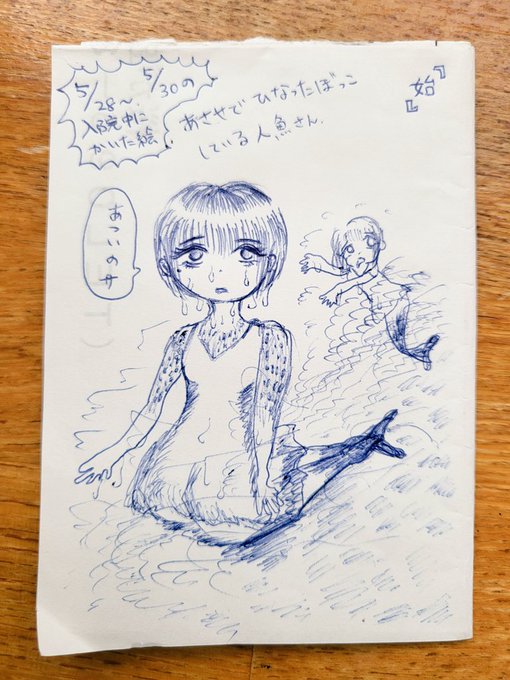 5/28〜5/30の
入院中に
かいた絵
あさせで ひなったぼっこ
している人魚さん.
『始』
あこいのサ